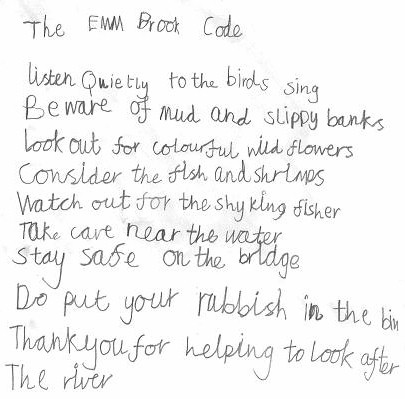 The EMM Brook Code
listen Quietly to the birds sing
Beware of mud and slippy banks
Look out for colourful wild flowers
Consider the fish and shrimps
Watch out for the shy king fisher
Take care near the water
Stay safe on the bridge
Do put your rubbish in the bin
Thankyou for helping to look after
The river